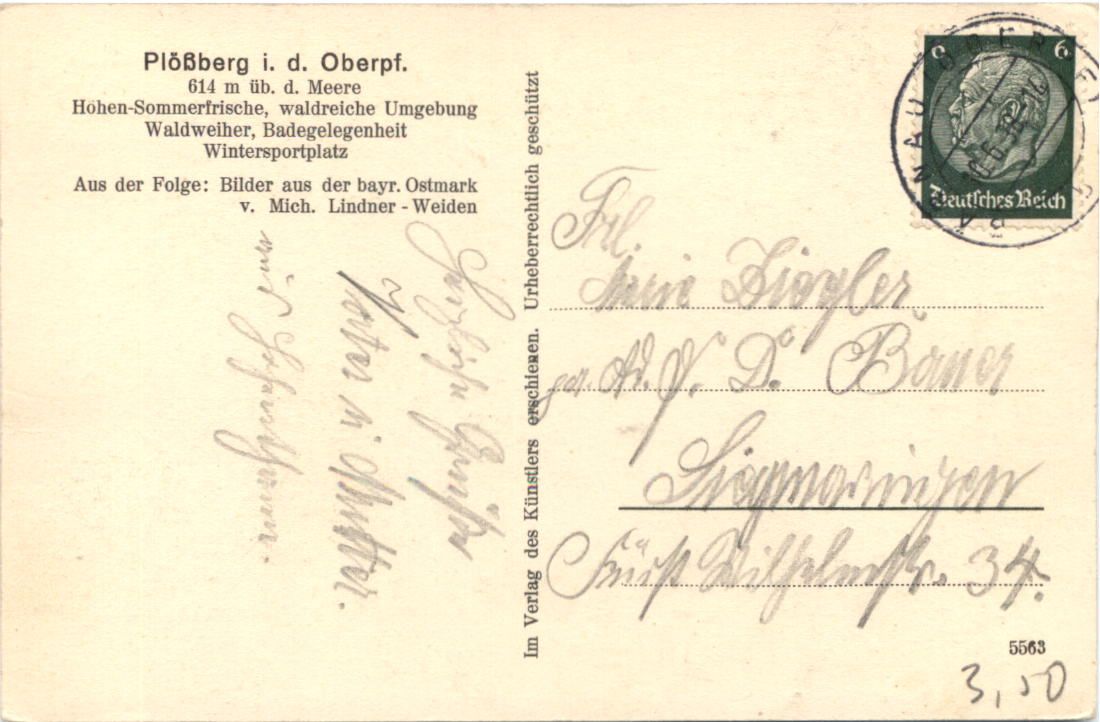 Plößberg i. d. Oberpf.
614 m üb. d. Meere
Höhen-Sommerfrische, waldreiche Umgebung
Waldweiher, Badegelegenheit
Wintersportplatz
Aus der Folge: Bilder aus der bayr. Ostmark
v. Mich. Lindner - Weiden
Herzliche Grüße
Vater u. Mutter.
Im Verlag des Künstlers erschienen. Urheberrechtlich geschützt
6 6
Deutsches Reich
Frl.
Ziegler
Bauer
Sigmaringen
Fürst Wilhelmstr. 34.
5563
3,50